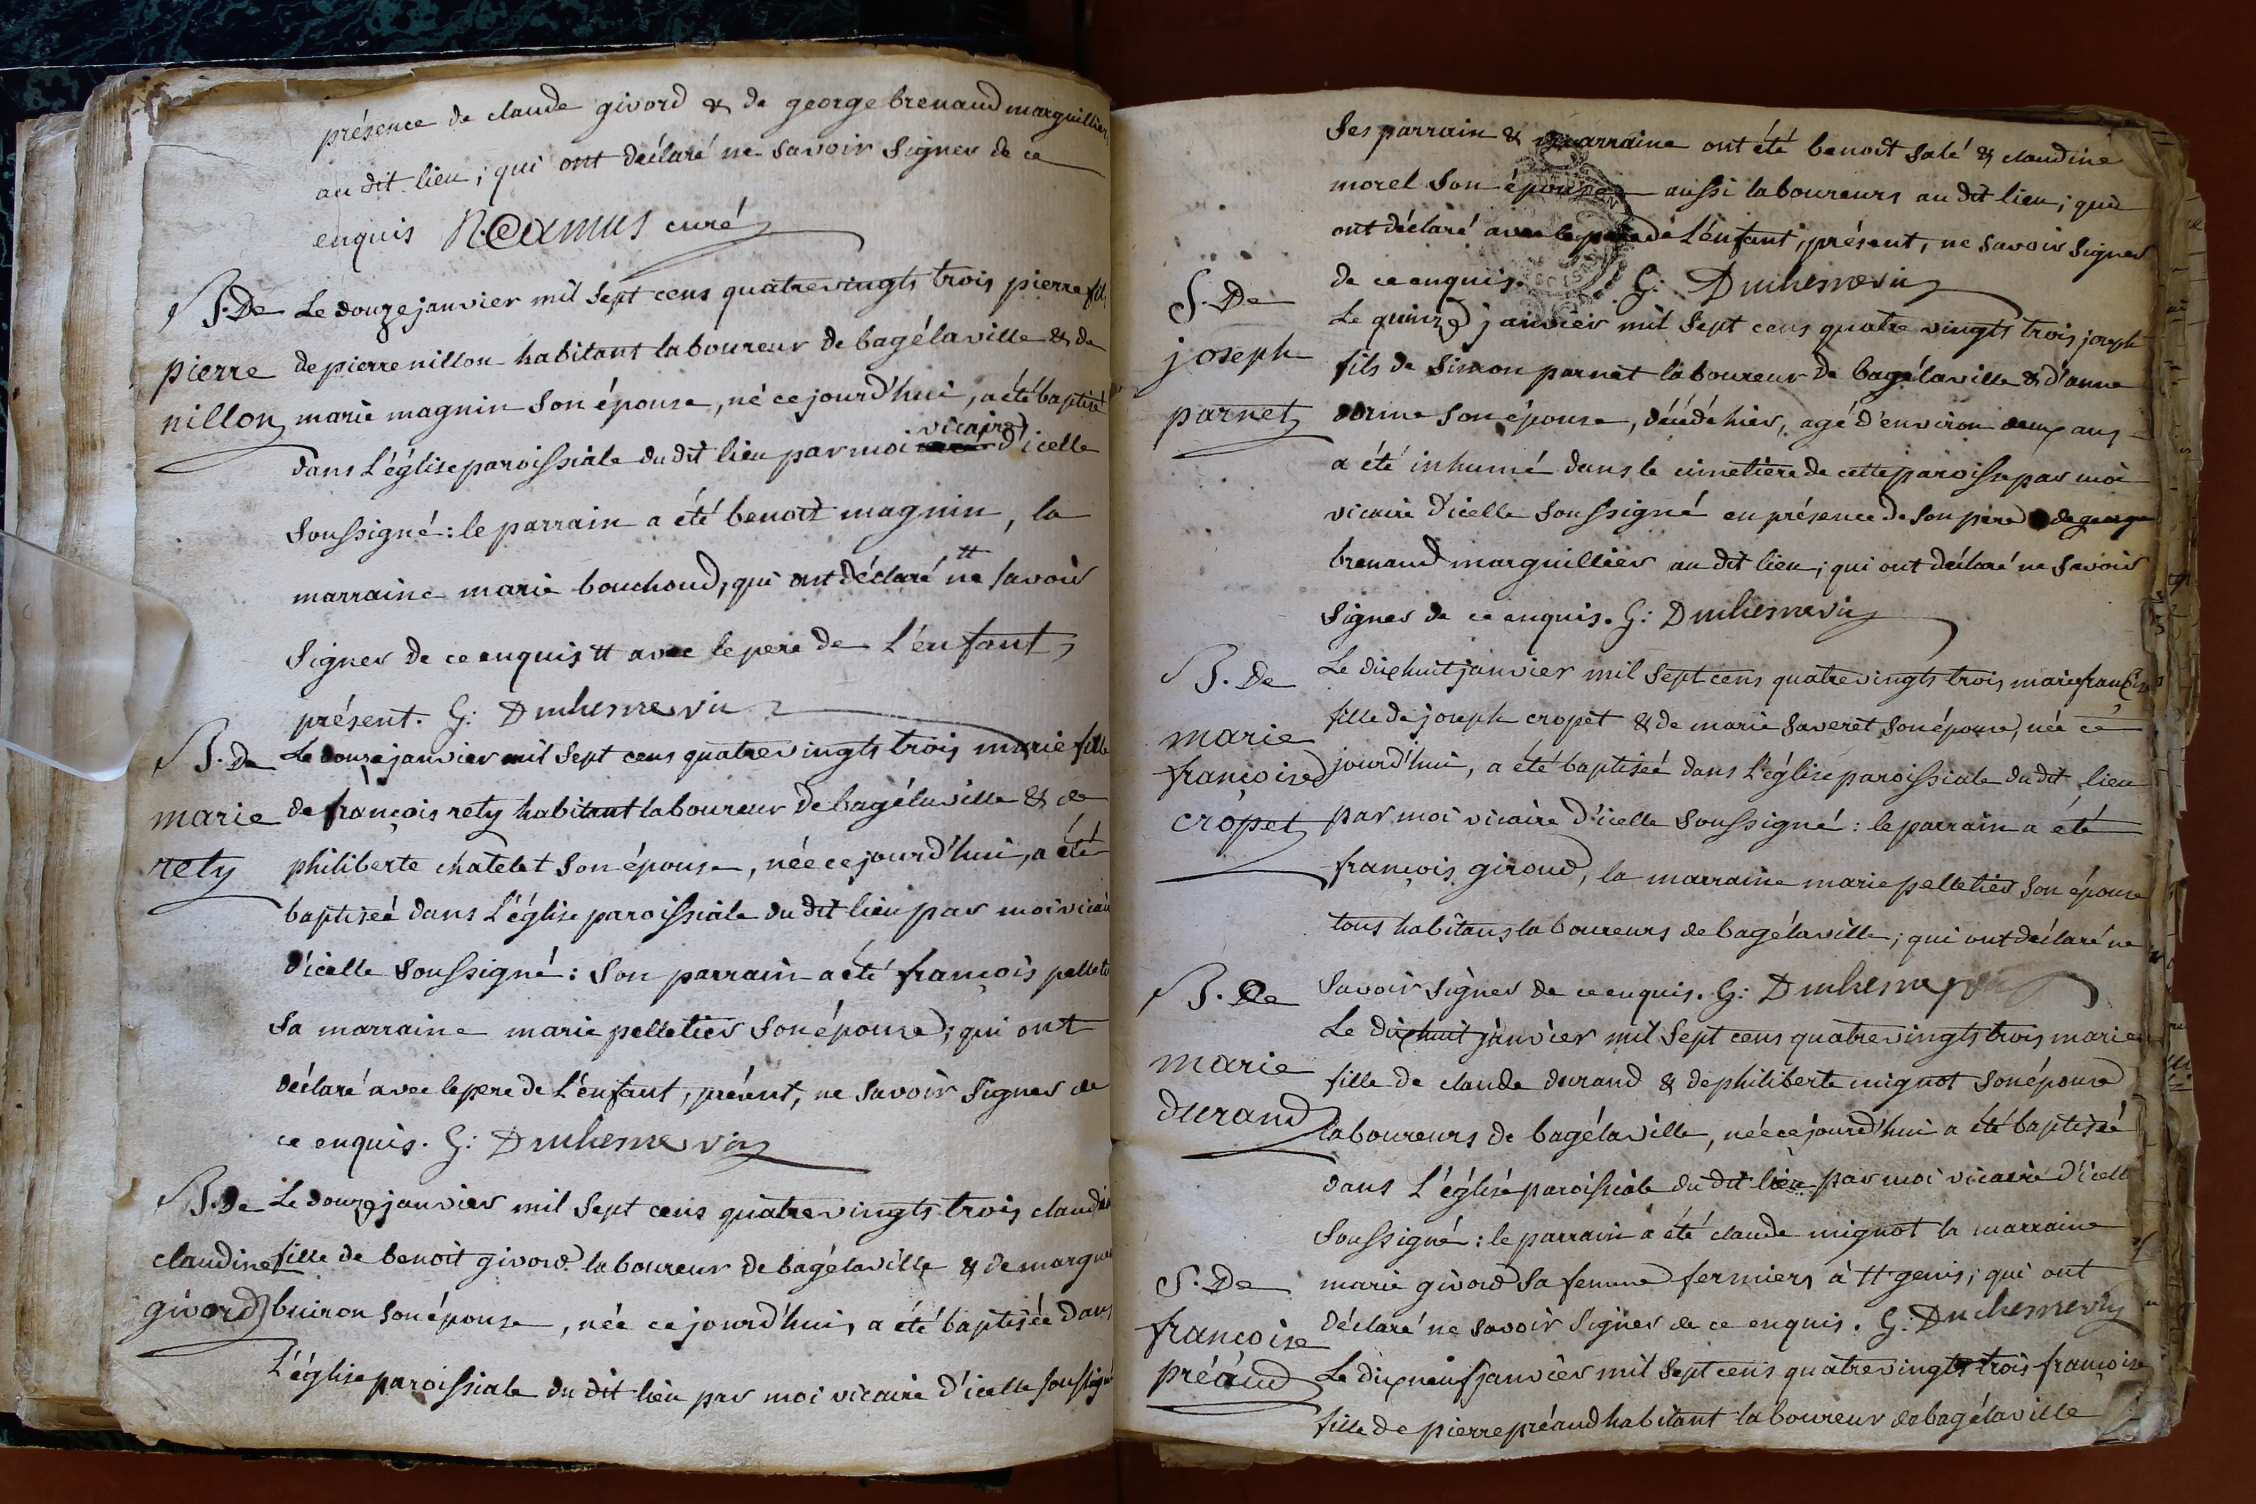 présence de claude givord & de george brenaud marguillier
au dit lieu ; qui ont déclaré ne savoir signer de ce
enquis Camus curé
B. De
pierre
nillon
Le douze janvier mil sept cens quatre vingts trois pierre fils
de pierre nillon habitant laboureur de bagélaville & de
marie magnin son épouse, né ce jourd'hui, a été baptisé
dans l'église paroissiale du dit lieu par moi vicaire d'icelle
soussigné : le parrain a été benoit magnin, la
marraine marie bouchoud, qui ont déclaré tt ne savoir
signer de ce enquis tt avec le pere de l'enfant,
présent. G: Duchesnevin
B. De
marie
rety
Le douze janvier mil sept cens quatre vingts trois marie fille
de françois rety habitant laboureur de bagélaville & de
philiberte chatelet son épouse, née ce jourd'hui, a été
baptiseé dans l'église paroissiale du dit lieu par moi vicaire
d'icelle soussigné : son parrain a été françois
sa marraine marie pelletier son épouse ; qui ont
déclaré avec le pere de l'enfant, présent, ne savoir signer de
ce enquis. G: Duchesnevin
B. De
claudine
givord
Le douze janvier mil sept cens quatre vingts trois claudine
fille de benoit givord laboureur de bagélaville & de
buiron son épouse, née ce jourd'hui, a été baptiseé dans
l'église paroissiale du dit lieu par moi vicaire d'icelle soussigné
Ses parrain & marraine ont été benoit salé & claudine
morel son épouse aussi laboureurs au dit lieu ; qui
ont déclaré avec le pere de l'enfant, présent, ne savoir signer
de ce enquis. G: Duchesnevin
S. De
joseph
parnet
Le quinze janvier mil sept cens quatre vingts trois joseph
fils de simon parnet laboureur de bagélaville & d'anne
dorine son épouse, décédé hier, agé d'environ deux ans
a été inhumé dans le cimetière de cette paroisse par moi
vicaire d'icelle soussigné en présence de son pere & de george
brenaud marguillier au dit lieu ; qui ont déclaré ne savoir
signer de ce enquis. G: Duchesnevin
B. De
marie
françoise
cropet
Le dixhuit janvier mil sept cens quatre vingts trois marie françoise
fille de joseph cropet & de marie saveret son épouse, née ce
jourd'hui, a été baptiseé dans l'église paroissiale du dit lieu
par moi vicaire d'icelle soussigné : le parrain a été
françois giroud, la marraine marie pelletier son épouse
tous habitans laboureurs de bagélaville ; qui ont déclaré ne
savoir signer de ce enquis. G: Duchesnevin
B. De
marie
durand
Le dixhuit janvier mil sept cens quatre vingts trois marie
fille de claude durand & de philiberte mignot son épouse
laboureurs de bagélaville, née ce jourd'hui a été baptiseé
dans l'église paroissiale du dit lieu par moi vicaire d'icelle
soussigné : le parrain a été claude mignot la marraine
marie givord sa femme fermiers à tt genis ; qui ont
déclaré ne savoir signer de ce enquis. G: Duchesnevin
S. De
françoise
préaud
Le dixneuf janvier mil sept cens quatre vingts trois françoise
fille de pierre préaud habitant laboureur de bagélaville